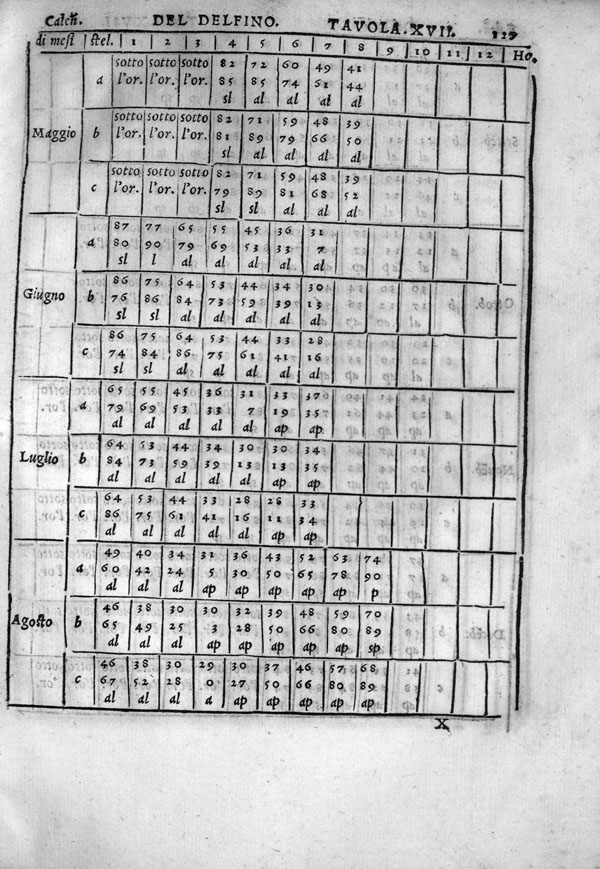 Calēn. DEL DELFINO. TAVOLA.XVII. 129
di mesi stel. 1 2 3 4 5 6 7 8 9 10 11 12 Ho.
sotto sotto sotto 82 72 60 49 41
a l'or. l'or. l'or. 85 85 74 61 44
sl al al al al
sotto sotto sotto 82 71 59 48 39
Maggio b l'or. l'or. l'or. 81 89 79 66 50
sl al al al al
sotto sotto sotto 82 71 59 48 39
c l'or. l'or. l'or. 79 89 81 68 52
sl sl al al al
87 77 65 55 45 36 31
a 80 90 79 69 53 33 7
sl l al al al al al
86 75 64 53 44 34 30
Giugno b 76 86 84 73 59 39 13
sl sl al al al al al
86 75 64 53 44 33 28
c 74 84 86 75 61 41 16
sl sl al al al al al
65 55 45 36 31 33 37
a 79 69 53 33 7 19 35
al al al al al ap ap
64 53 44 34 30 30 34
Luglio b 84 73 59 39 13 13 35
al al al al al ap ap
64 53 44 33 28 28 33
c 86 75 61 41 16 11 34
al al al al al ap ap
49 40 34 31 36 43 52 63 74
a 60 42 24 5 30 50 65 78 90
al al al ap ap ap ap ap p
46 38 30 30 32 39 48 59 70
Agosto b 65 49 25 3 28 50 66 80 89
al al al ap ap ap ap ap sp
46 38 30 29 30 37 46 57 68
c 67 52 28 0 27 50 66 80 89
al al al a ap ap ap ap sp
X